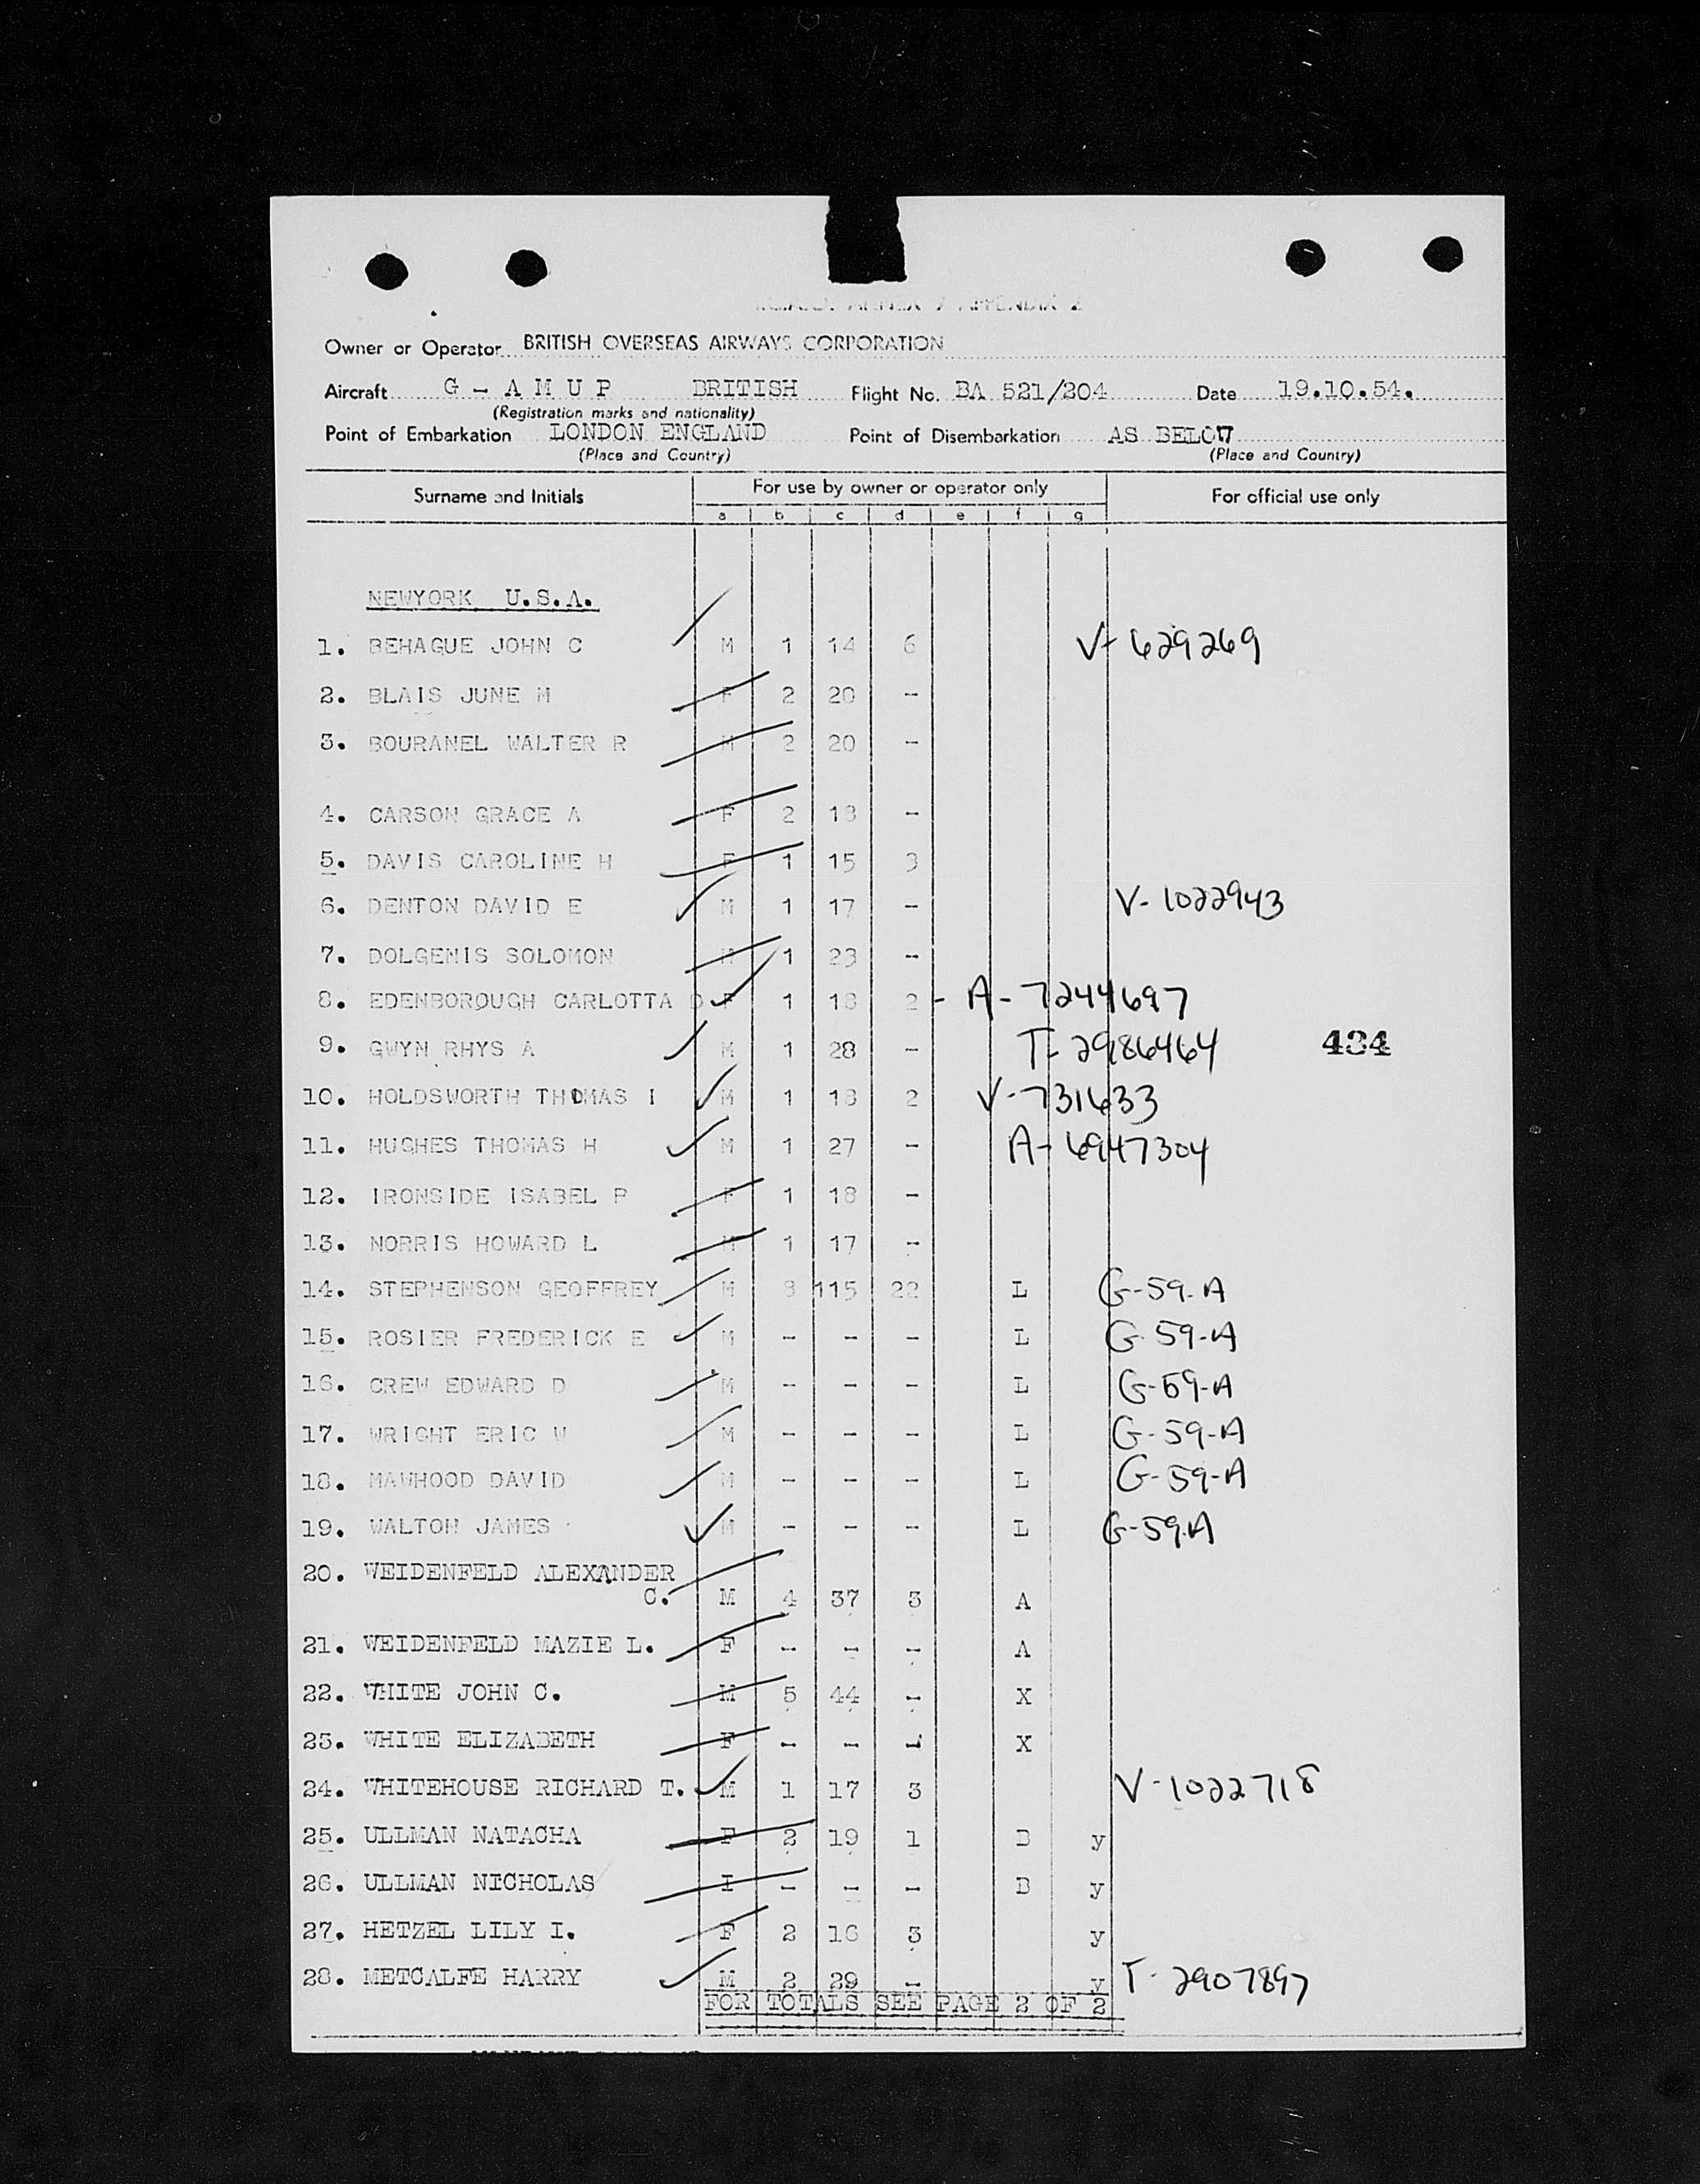 ANNEX 9 APPENDIX 2
Owner or Operator BRITISH OVERSEAS AIRWAYS CORPORATION
Aircraft G - A M U P BRITISH Flight No. BA 521/204 Date 19.10.54.
(Registration marks and nationality)
Point of Embarkation LONDON ENGLAND Point of Disembarkation AS BELOW
(Place and Country) (Place and Country)
Surname and Initials For use by owner or operator only For official use only
a b c d e f g
NEWYORK U.S.A.
1. BEHAGUE JOHN C M 1 14 6 V- 629269
2. BLAIS JUNE M F 2 20 -
3. BOURANEL WALTER R M 2 20 -
4. CARSON GRACE A F 2 18 -
5. DAVIS CAROLINE H F 1 15 3
6. DENTON DAVID E M 1 17 - V- 1022943
7. DOLGENIS SOLOMON M 1 23 -
8. EDENBOROUGH CARLOTTA D F 1 18 2 - A - 7244697
9. GWYN RHYS A M 1 28 - T- 2986464 434
10. HOLDSWORTH THOMAS I M 1 18 2 V-731633
11. HUGHES THOMAS H M 1 27 - A- 6947304
12. IRONSIDE ISABEL P F 1 18 -
13. NORRIS HOWARD L M 1 17 -
14. STEPHENSON GEOFFREY M 8 115 22 L G-59-A
15. ROSIER FREDERICK E M - - - L G-59-A
16. CREW EDWARD D M - - - L G-59-A
17. WRIGHT ERIC W M - - - L G-59-A
18. MAWHOOD DAVID M - - - L G-59-A
19. WALTON JAMES M - - - L G-59A
20. WEIDENFELD ALEXANDER
C. M 4 37 3 A
21. WEIDENFELD MAZIE L. F - - - A
22. WHITE JOHN C. M 5 44 - X
23. WHITE ELIZABETH F - - - X
24. WHITEHOUSE RICHARD T. M 1 17 3 V-1022718
25. ULLMAN NATACHA F 2 19 1 B y
26. ULLMAN NICHOLAS I - - - B y
27. HETZEL LILY I. F 2 16 3 y
28. METCALFE HARRY M 2 29 - y T- 2907897
FOR TOTALS SEE PAGE 2 OF 2